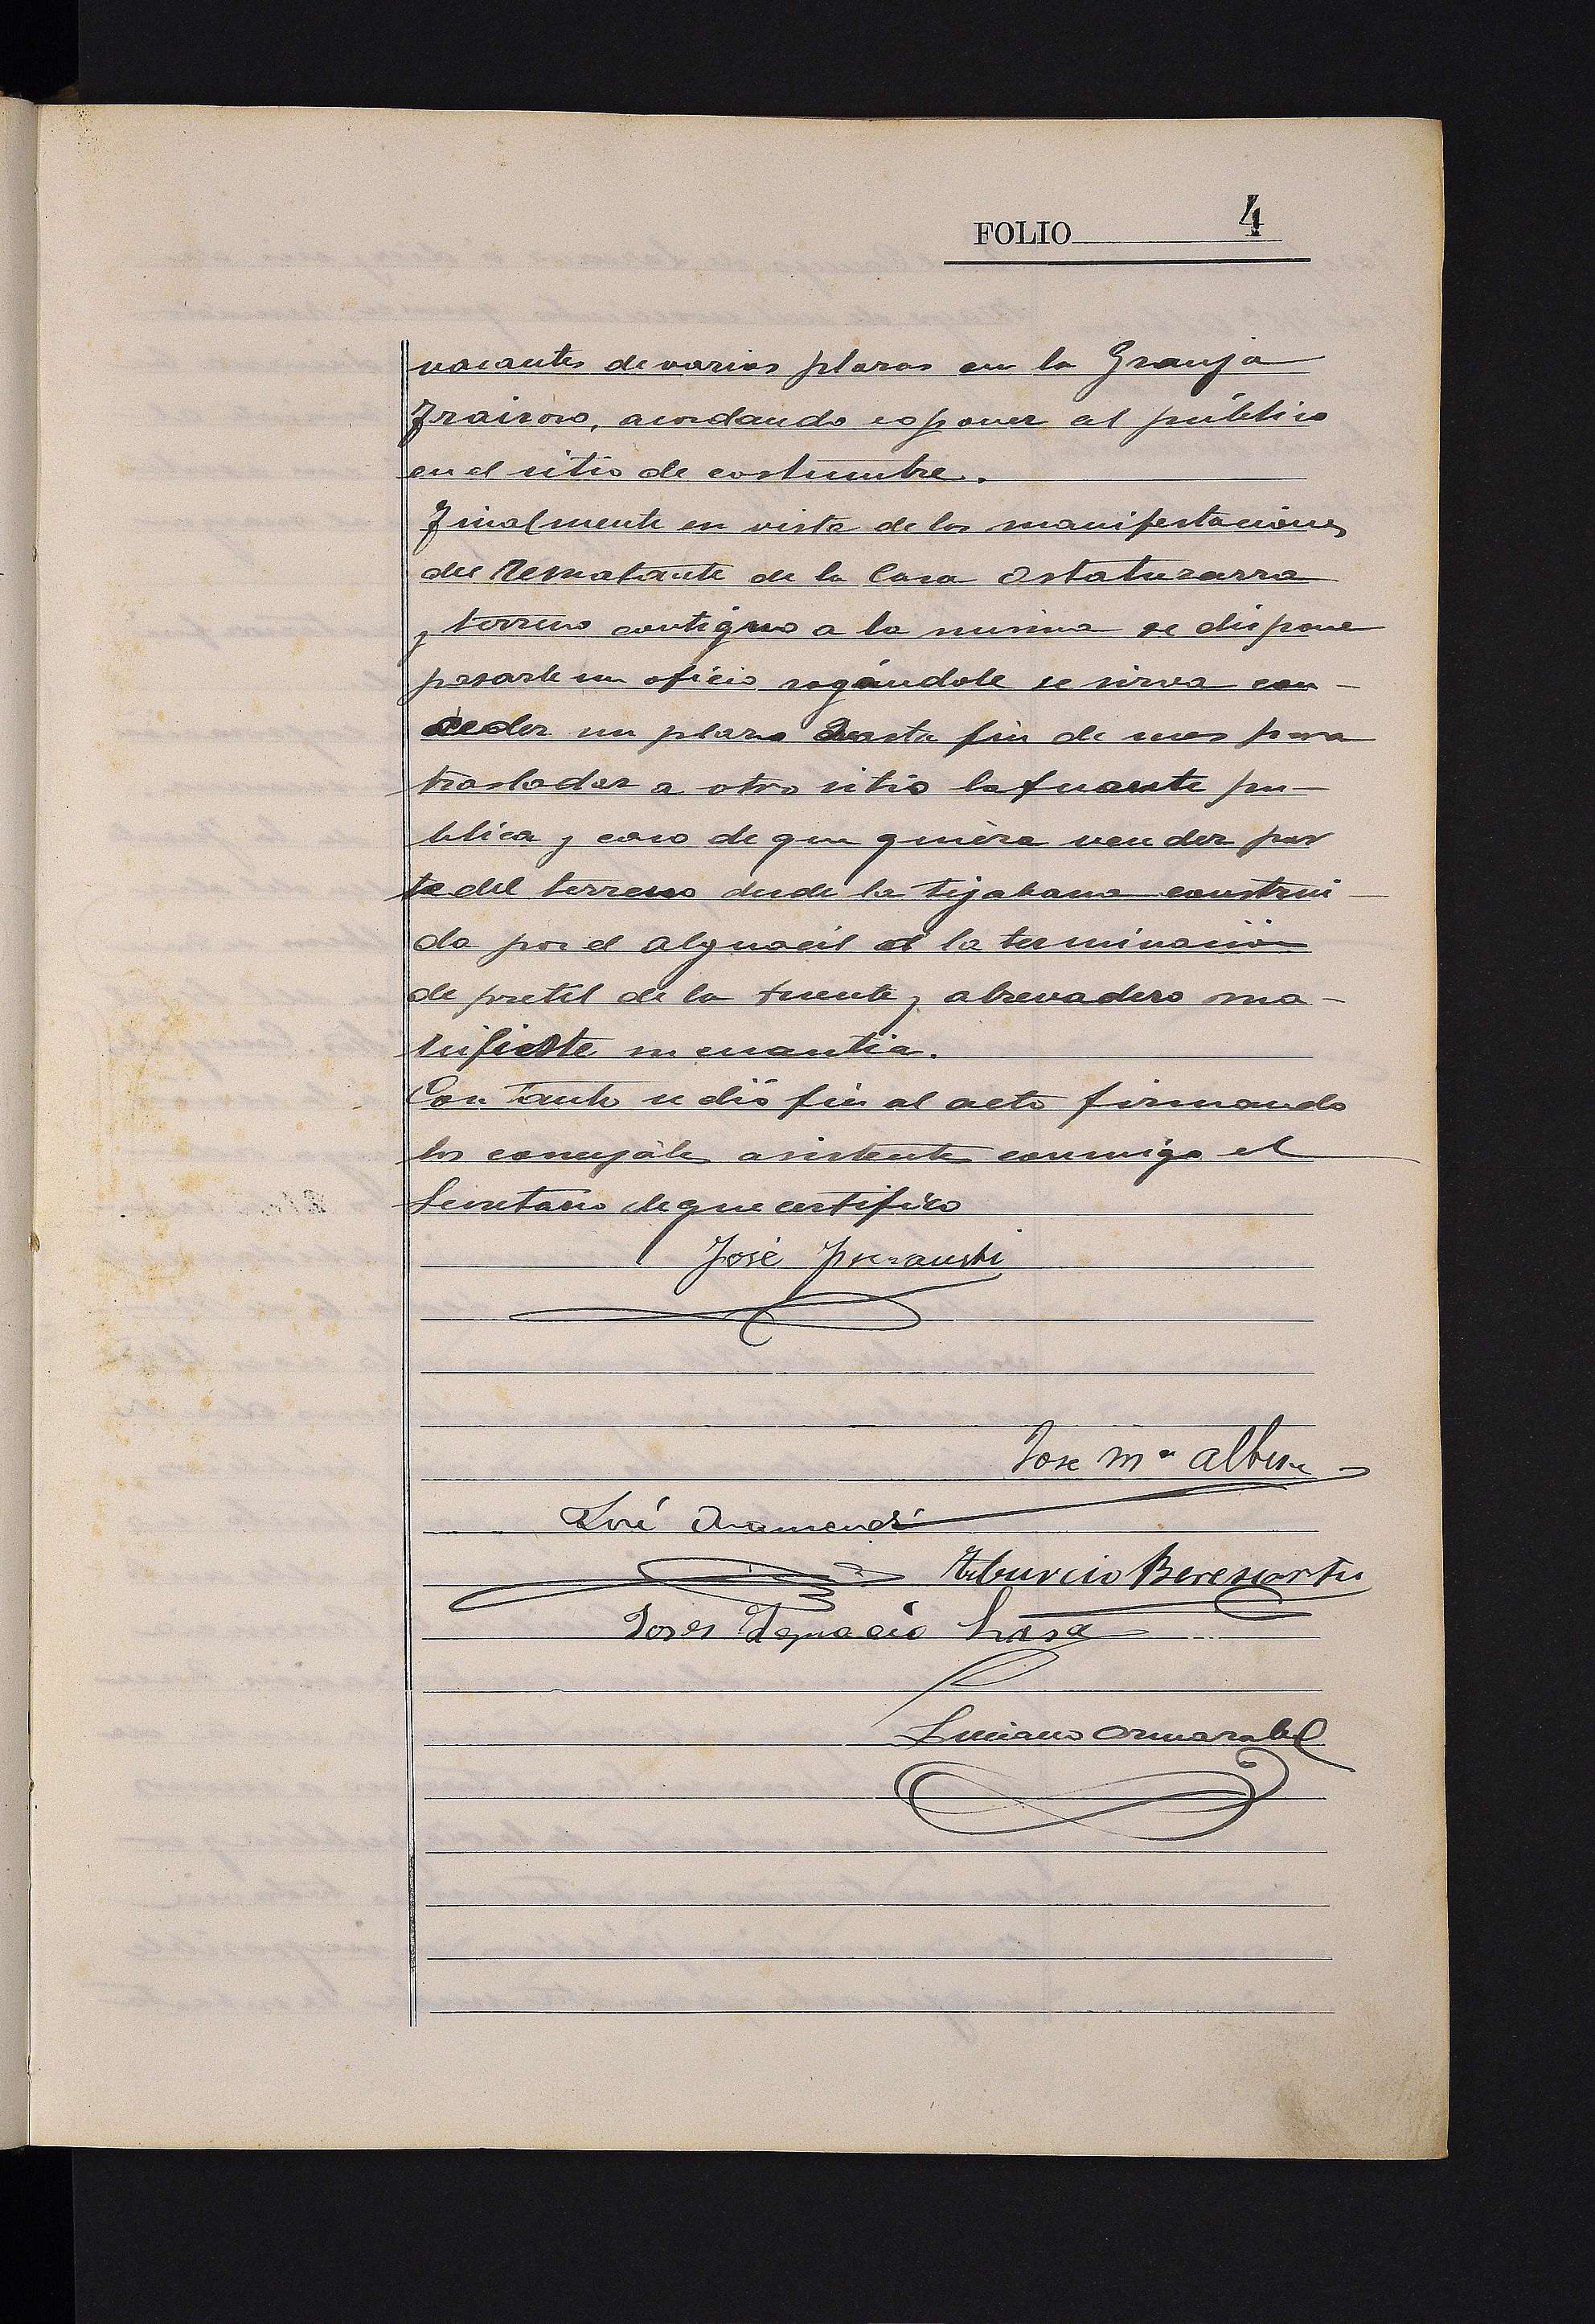 FOLIO 4
vacantes de varias plazas en la Granja
Fraisoro, acordando exponer al público
en el sitio de costumbre.
Finalmente en vista de las manifestaciones
del Rematante de la Casa Ostatuzarra
y terreno contiguo a la misma se dispone
pasarle un oficio rogándole se sirva con-
ceder un plazo hasta fin de mes para
trasladar a otro sitio la fuente pu-
blica y caso de que quiera vender par
te del terreno desde la tejabana construi-
da por el alguacil a la terminación
de pretil de la fuente y abrevadero ma-
nifieste su cuantia.
Con tanto se dió fin al acto firmando
los concejales asistentes conmigo el
Secretario de que certifico
José
Jose Mª
José
Tiburcio
Jose Ignacio Lasa
Luciano Ormazabal